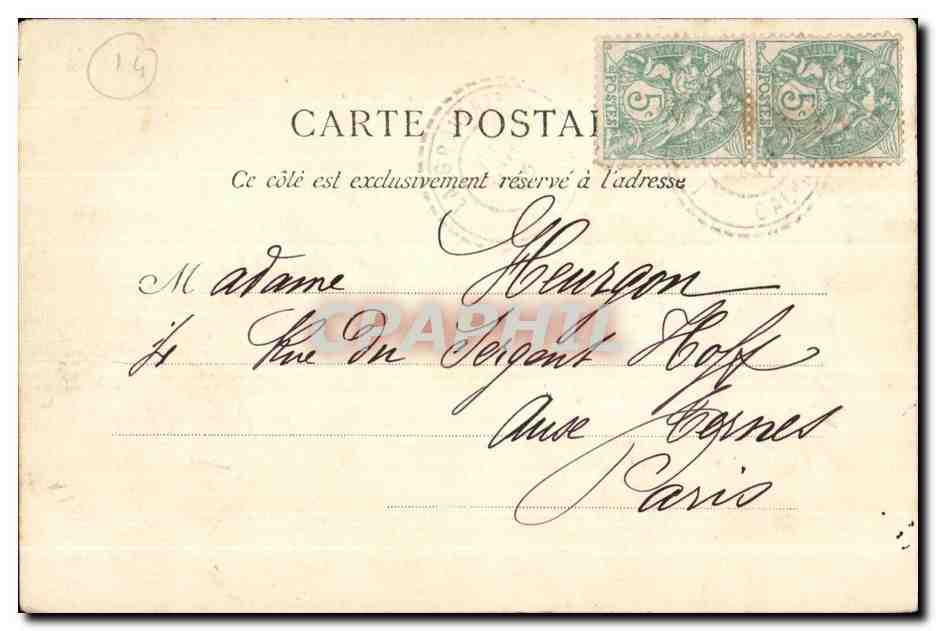 14
CARTE POSTAL
Ce côté est exclusivement réservé à l'adresse
5c POSTES
5c POSTES
CPAPHIL
Madame Heurgon
4 Rue Du Sergent Hoff
Aux Ternes
Paris